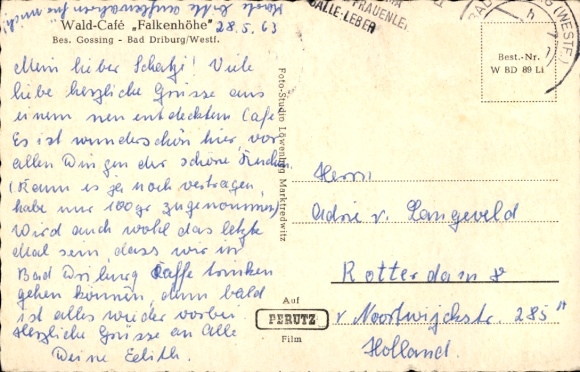 Karte bitte aufbewahren für mich.
Wald-Café „Falkenhöhe" 28.5.63
Bes. Gossing - Bad Driburg/Westf.
Mein lieber Schatzi! Viele
liebe herzliche Grüsse aus
einem neu entdecktem Café
Es ist wunderschön hier vor
allen Dingen der schöne Kuchen
(Kann es ja noch vertragen,
habe nur 100gr zugenommen)
Wird auch wohl das letzte
Mal sein, dass wir in
Bad Driburg Kaffe trinken
gehen können, denn bald
ist alles wieder vorbei
Herzliche Grüsse an Alle
Deine Edith.
Foto-Studio Löwenhag Marktredwitz
Auf
PERUTZ
Film
FRAUENLEI
GALLE-LEBER
BAD
(WESTF.)
h
Best.-Nr.
W BD 89 Li
Herrn
Adrie v. Langeveld
Rotterdam 8
v Noortwijckstr. 285
Holland.